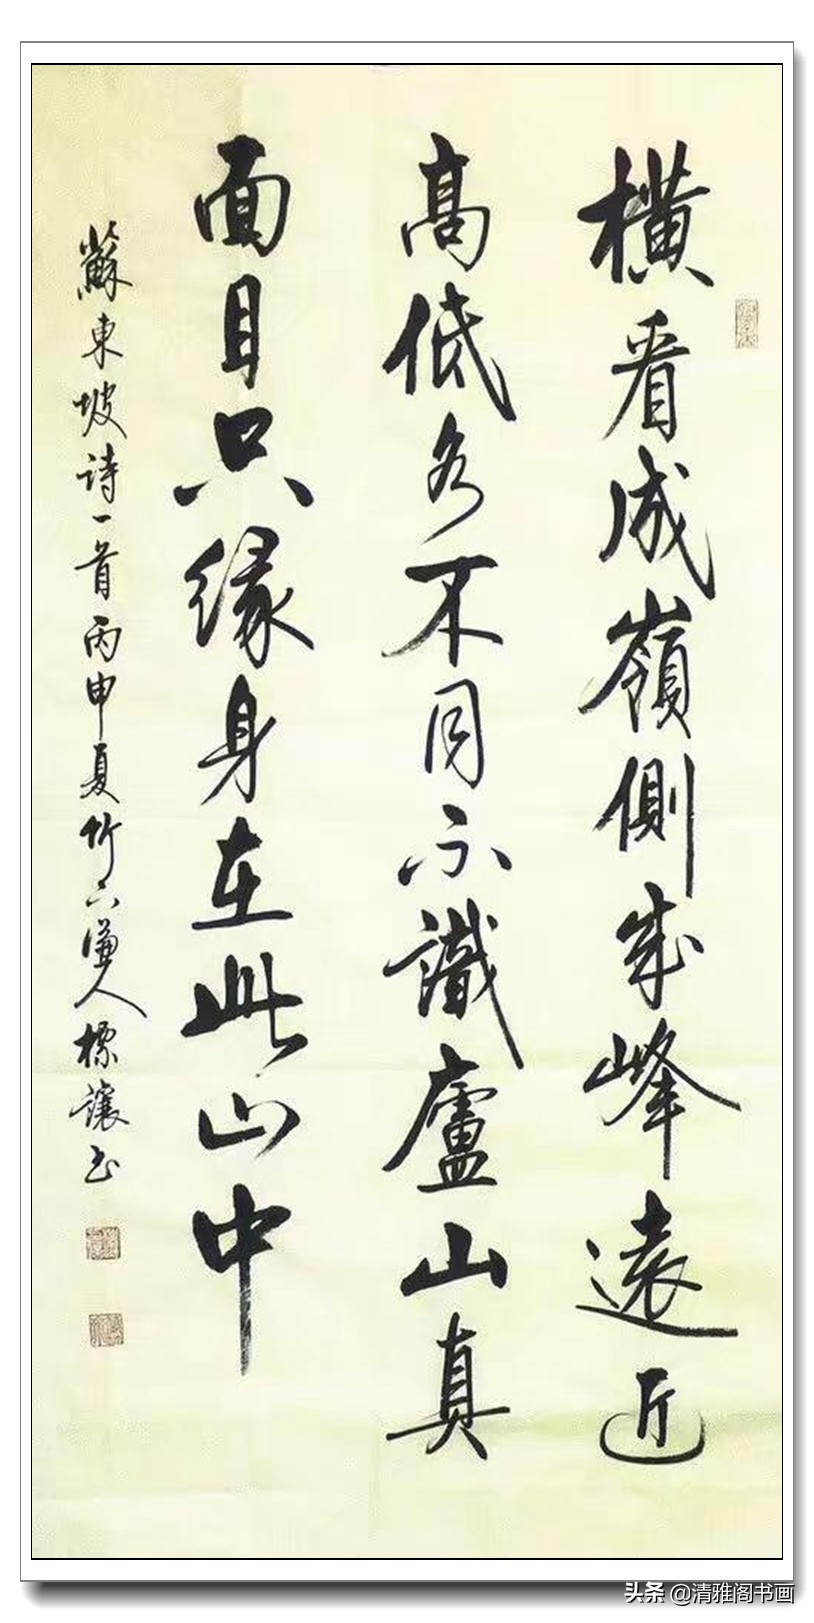 橫看成嶺側成峰遠近
髙低各不同不識廬山真
面目只緣身在此山中
蘇東坡诗一首丙申夏竹六謙人標讓书
头条 @清雅阁书画